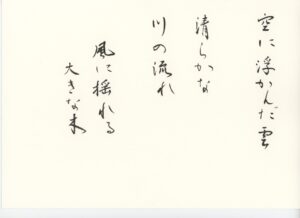 空に浮かんだ雲
清らかな
川の流れ
風に揺れる
大きな木